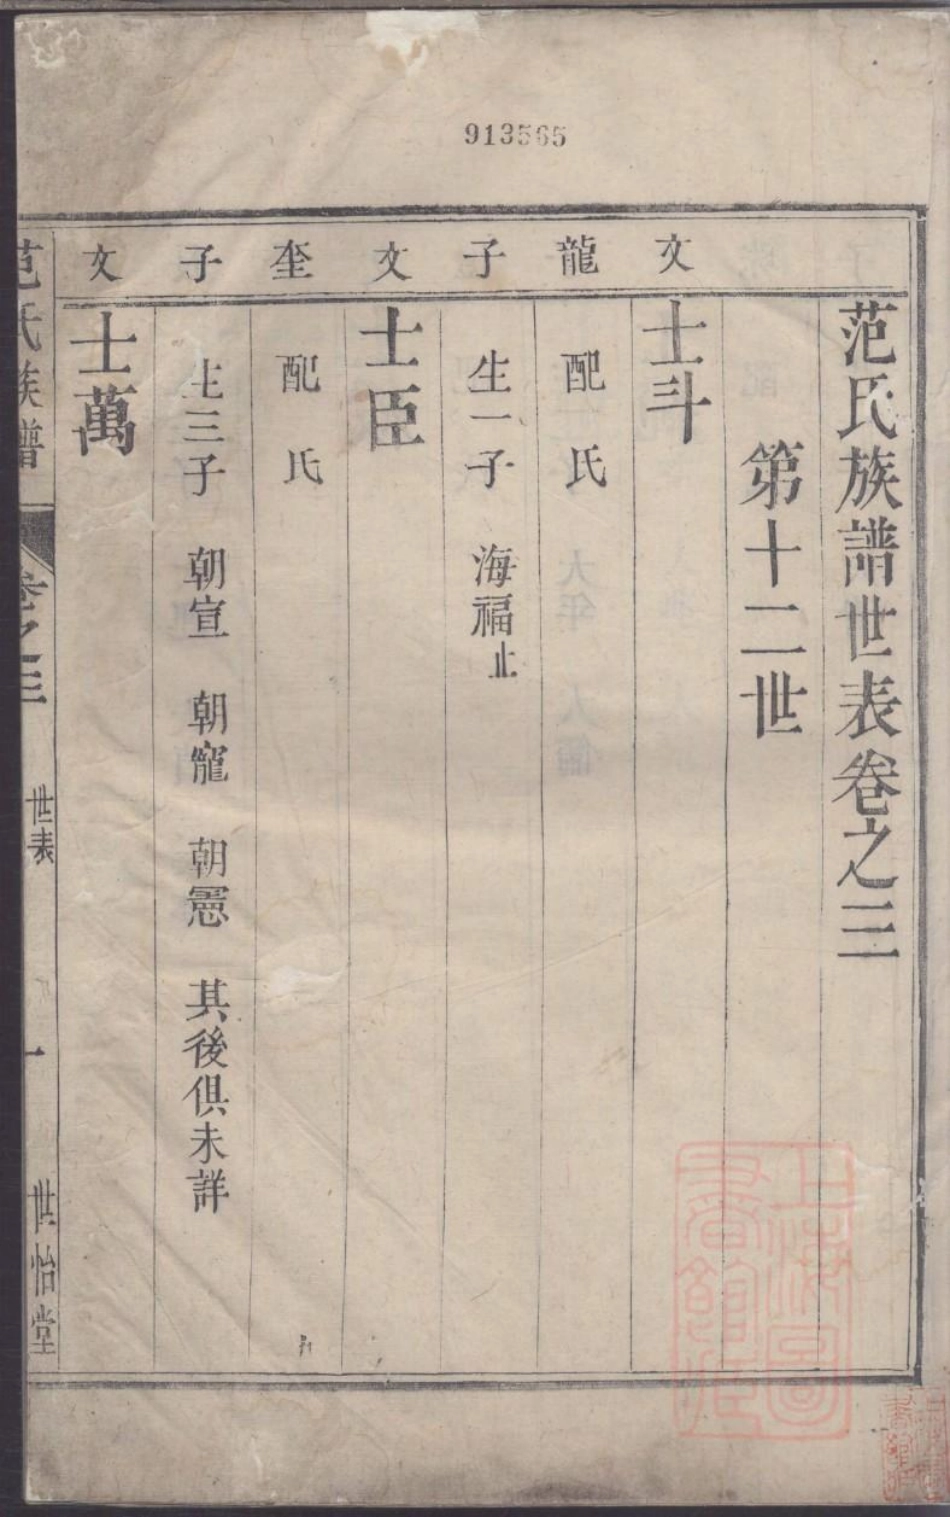 913565
范氏族譜世表卷之三
第十二世
文
士斗
龍
配 氏
子
生一子 海福止
文
士臣
奎
配 氏
子
生三子 朝宣 朝寵 朝憲 其後俱未詳
文
士萬
范氏族譜 卷之三 世表 一 世怡堂
上海圖書館藏